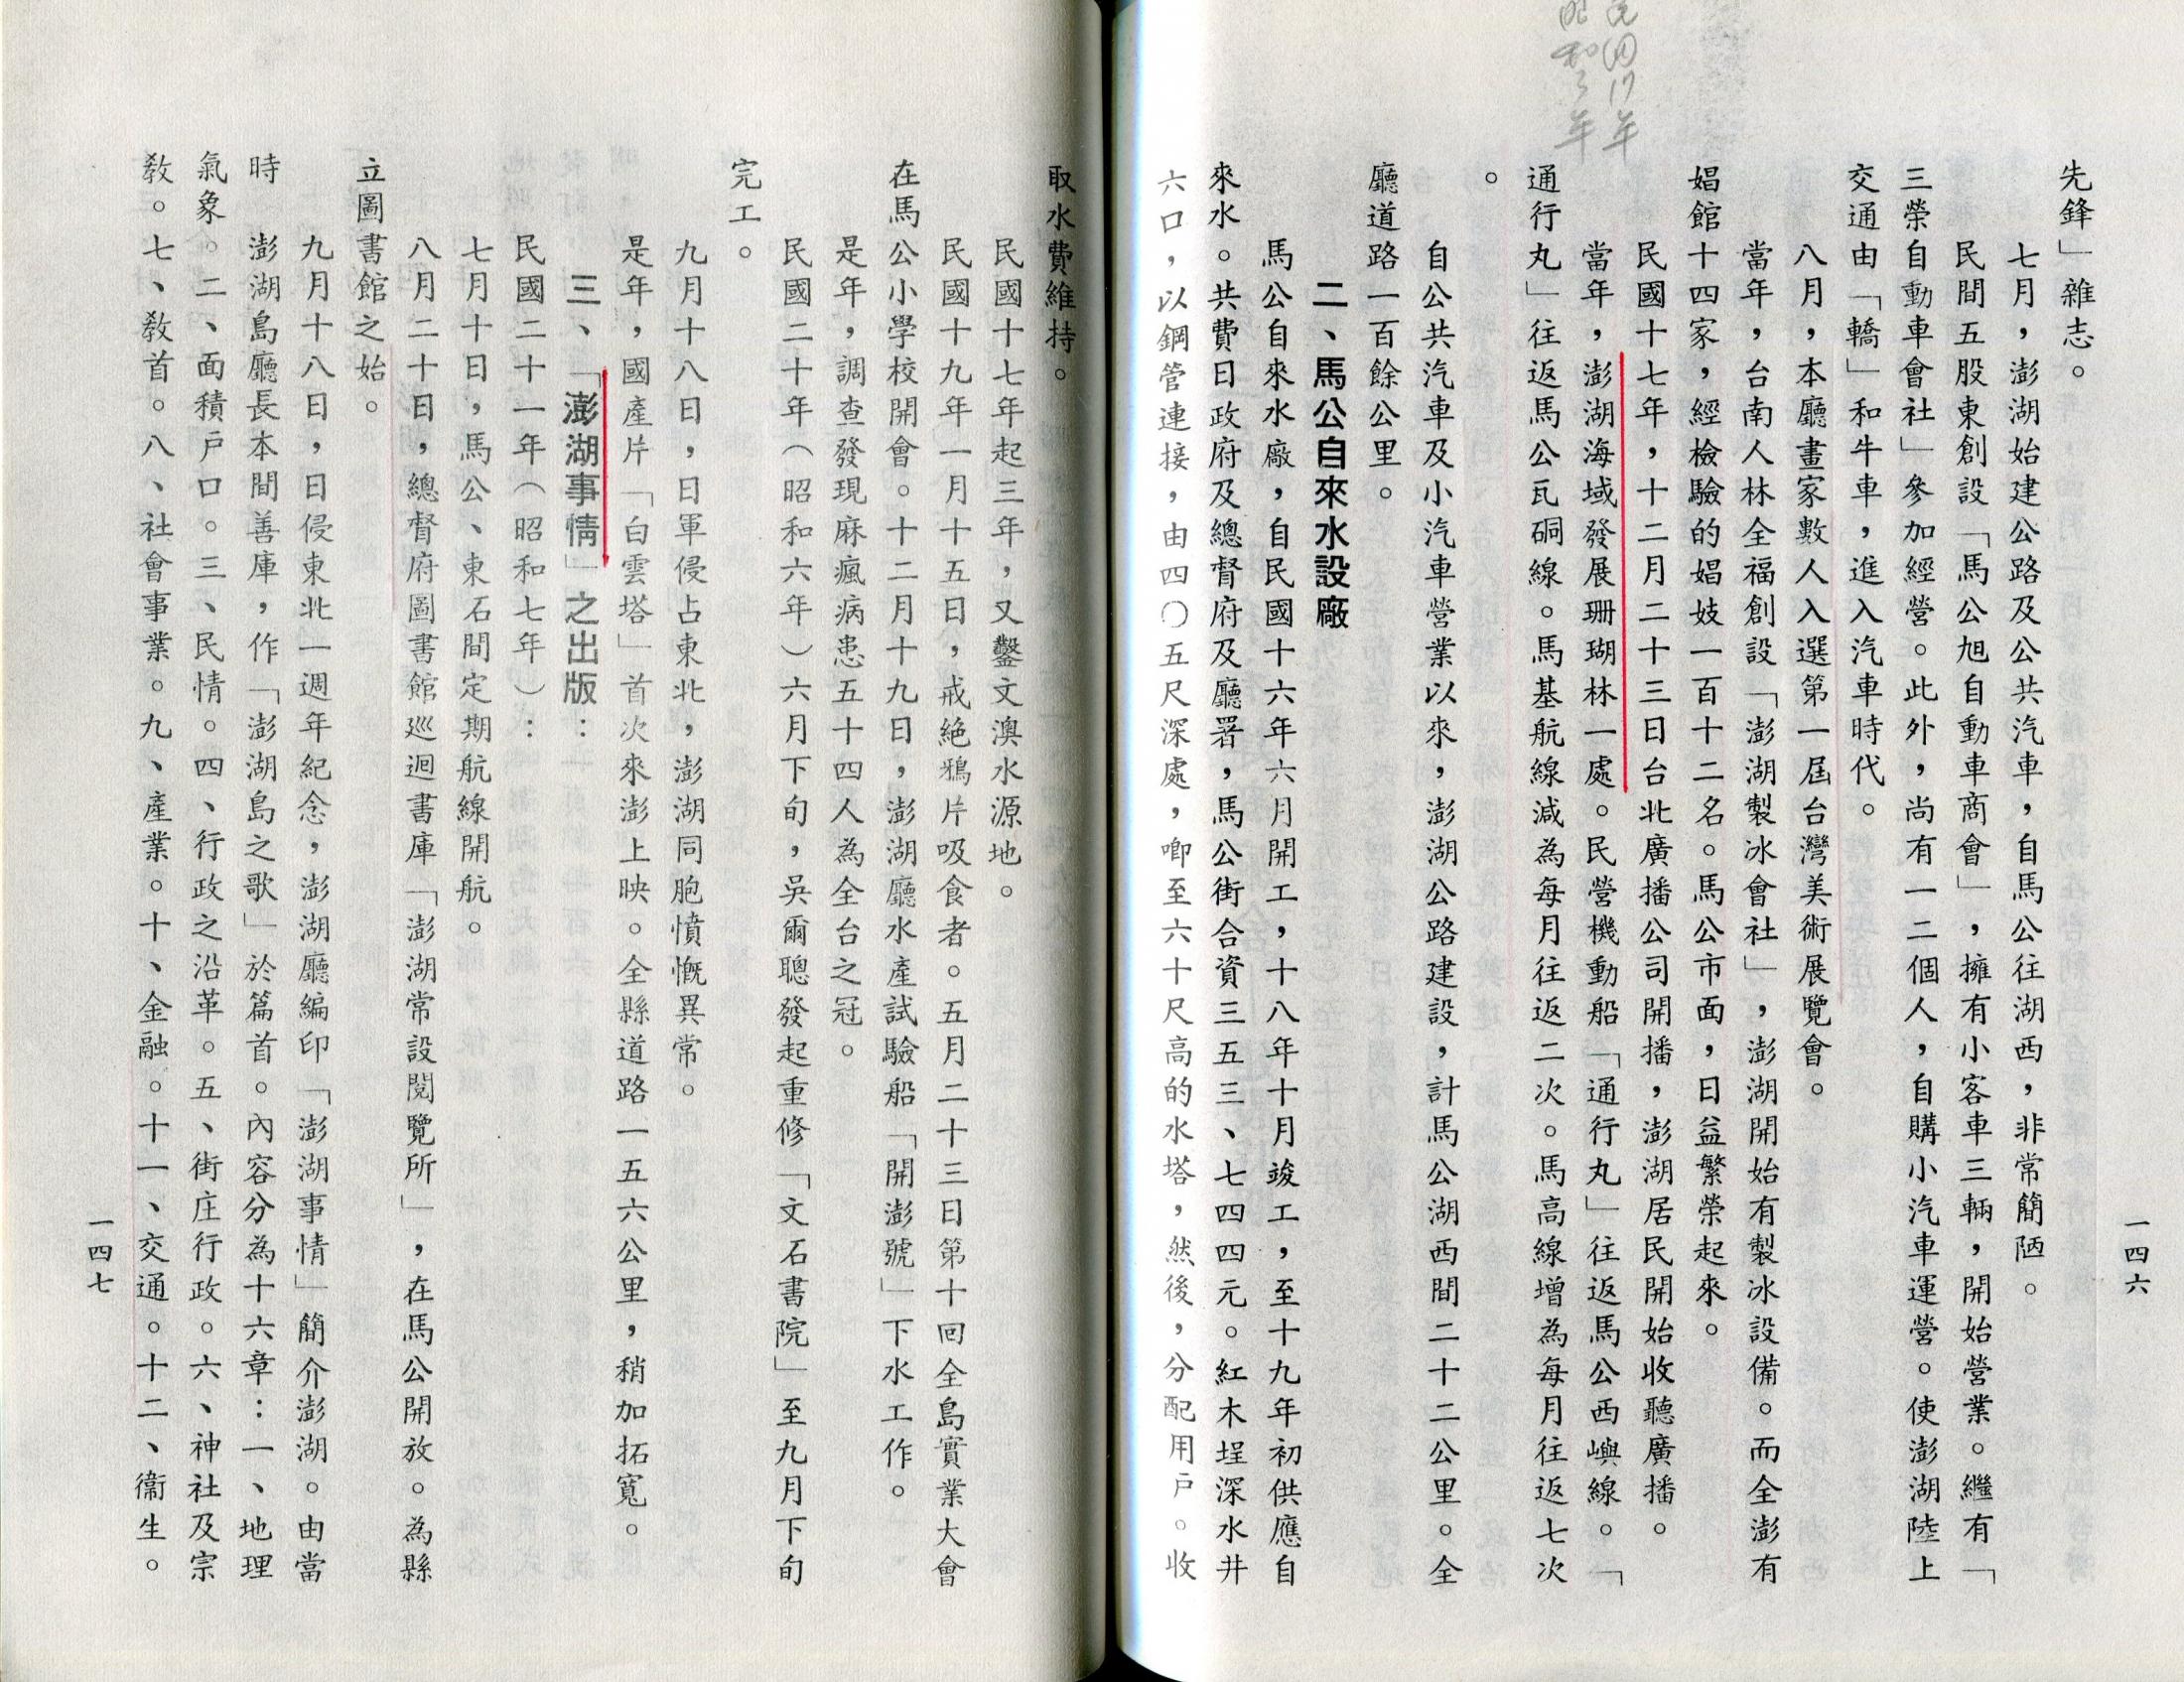 民国17年
昭和3年
先鋒」雜志。
七月，澎湖始建公路及公共汽車，自馬公往湖西，非常簡陋。
民間五股東創設「馬公旭自動車商會」，擁有小客車三輛，開始營業。繼有「
三榮自動車會社」參加經營。此外，尚有一二個人，自購小汽車運營。使澎湖陸上
交通由「轎」和牛車，進入汽車時代。
八月，本廳畫家數人入選第一屆台灣美術展覽會。
當年，台南人林全福創設「澎湖製冰會社」，澎湖開始有製冰設備。而全澎有
娼館十四家，經檢驗的娼妓一百十二名。馬公市面，日益繁榮起來。
民國十七年，十二月二十三日台北廣播公司開播，澎湖居民開始收聽廣播。
當年，澎湖海域發展珊瑚林一處。民營機動船「通行丸」往返馬公西嶼線。「
通行丸」往返馬公瓦硐線。馬基航線減為每月往返二次。馬高線增為每月往返七次
。
自公共汽車及小汽車營業以來，澎湖公路建設，計馬公湖西間二十二公里。全
廳道路一百餘公里。
二、馬公自來水設廠
馬公自來水廠，自民國十六年六月開工，十八年十月竣工，至十九年初供應自
來水。共費日政府及總督府及廳署，馬公街合資三五三、七四四元。紅木埕深水井
六口，以鋼管連接，由四〇五尺深處，唧至六十尺高的水塔，然後，分配用戶。收
一四六
取水費維持。
民國十七年起三年，又鑿文澳水源地。
民國十九年一月十五日，戒絕鴉片吸食者。五月二十三日第十回全島實業大會
在馬公小學校開會。十二月十九日，澎湖廳水產試驗船「開澎號」下水工作。
是年，調查發現麻瘋病患五十四人為全台之冠。
民國二十年（昭和六年）六月下旬，吳爾聰發起重修「文石書院」至九月下旬
完工。
九月十八日，日軍侵占東北，澎湖同胞憤慨異常。
是年，國產片「白雲塔」首次來澎上映。全縣道路一五六公里，稍加拓寬。
三、「澎湖事情」之出版：
民國二十一年（昭和七年）：
七月十日，馬公、東石間定期航線開航。
八月二十日，總督府圖書館巡迴書庫「澎湖常設閱覽所」，在馬公開放。為縣
立圖書館之始。
九月十八日，日侵東北一週年紀念，澎湖廳編印「澎湖事情」簡介澎湖。由當
時澎湖島廳長本間善庫，作「澎湖島之歌」於篇首。內容分為十六章：一、地理
氣象。二、面積戶口。三、民情。四、行政之沿革。五、街庄行政。六、神社及宗
教。七、教首。八、社會事業。九、產業。十、金融。十一、交通。十二、衛生。
一四七